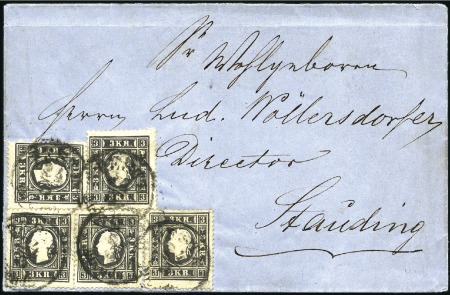 Sr Wohlgeboren
Herrn Lud. Wöllersdorfer
Director
Stauding
3 KR.
3 KR
3 KR
3 KR